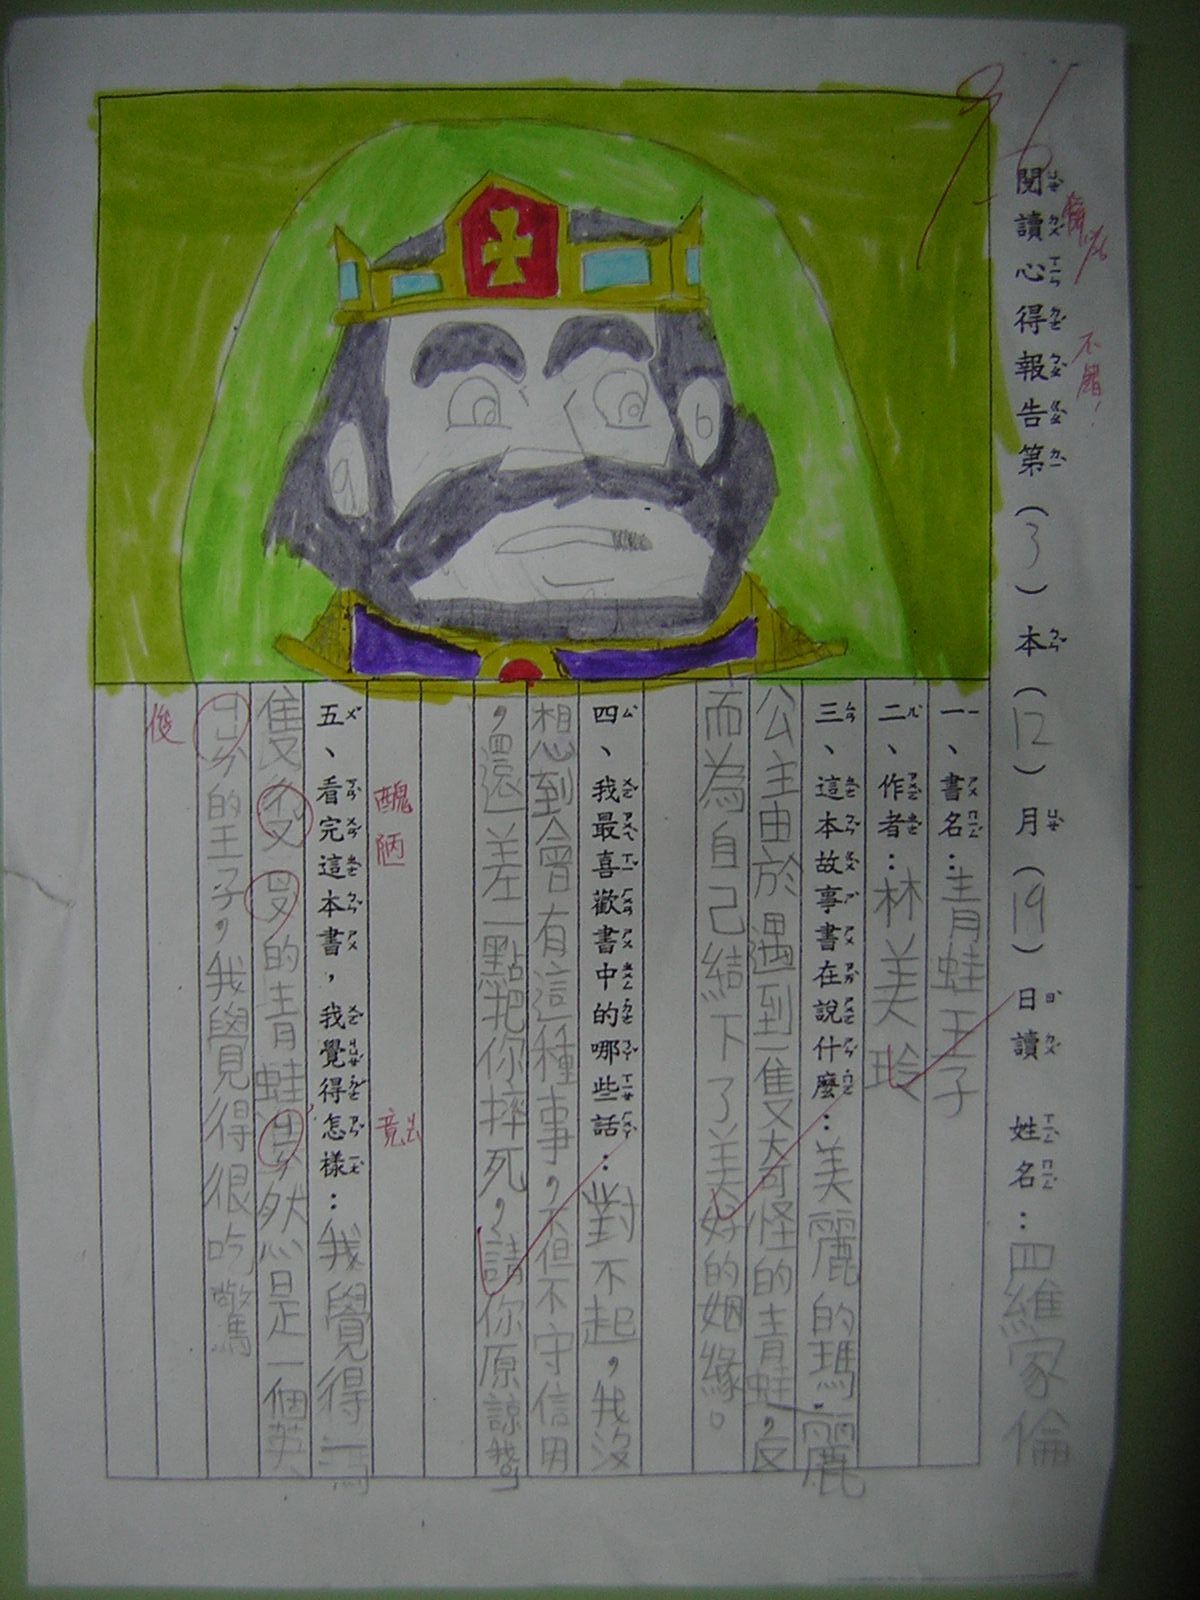 閱讀心得報告第(3)本(12)月(19)日讀 姓名:四維家倫
不錯!
一、書名:青蛙王子
二、作者:林美玲
三、這本故事書在說什麼:美麗的瑪麗
公主由於遇到一隻奇怪的青蛙,反
而為自己結下了美好的姻緣。
四、我最喜歡書中的哪些話:對不起,我沒
想到會有這種事,不但不守信用
,還差一點把你摔死,請你原諒我。
醜陋 竟
五、看完這本書,我覺得怎樣:我覺得一
隻 的青蛙 然是一個英
ㄐㄩㄣˋ的王子,我覺得很吃驚
俊